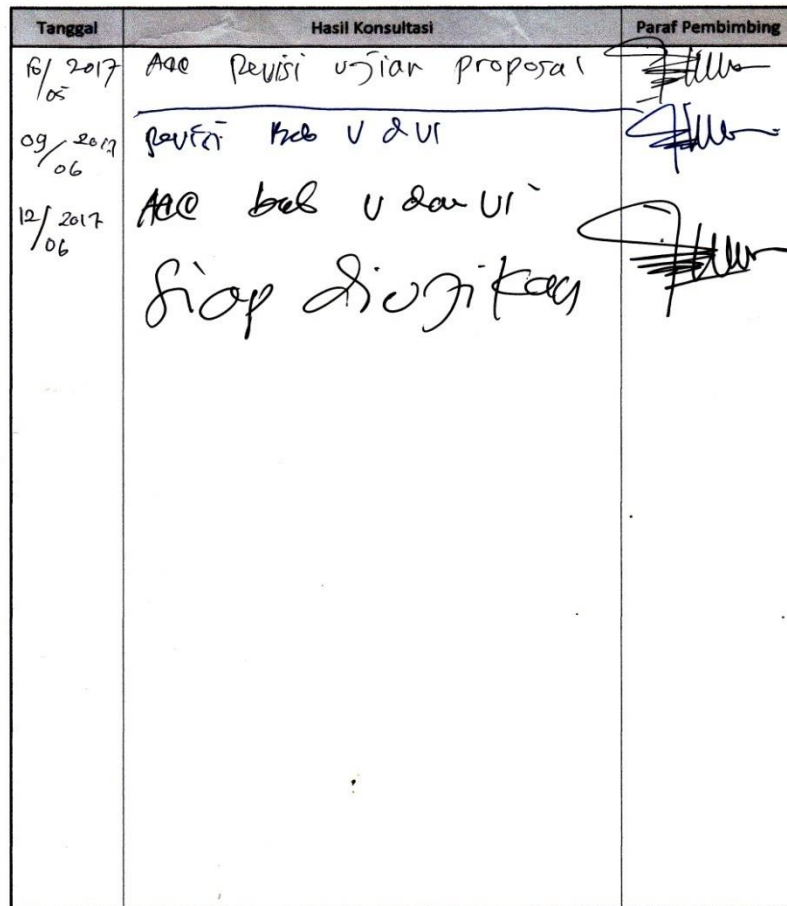 Tanggal Hasil Konsultasi Paraf Pembimbing
16/05 2017 Acc Revisi ujian proposal
09/06 2017 Revisi Bab V & VI
12/06 2017 Acc bab V dan VI
Siap diujikan